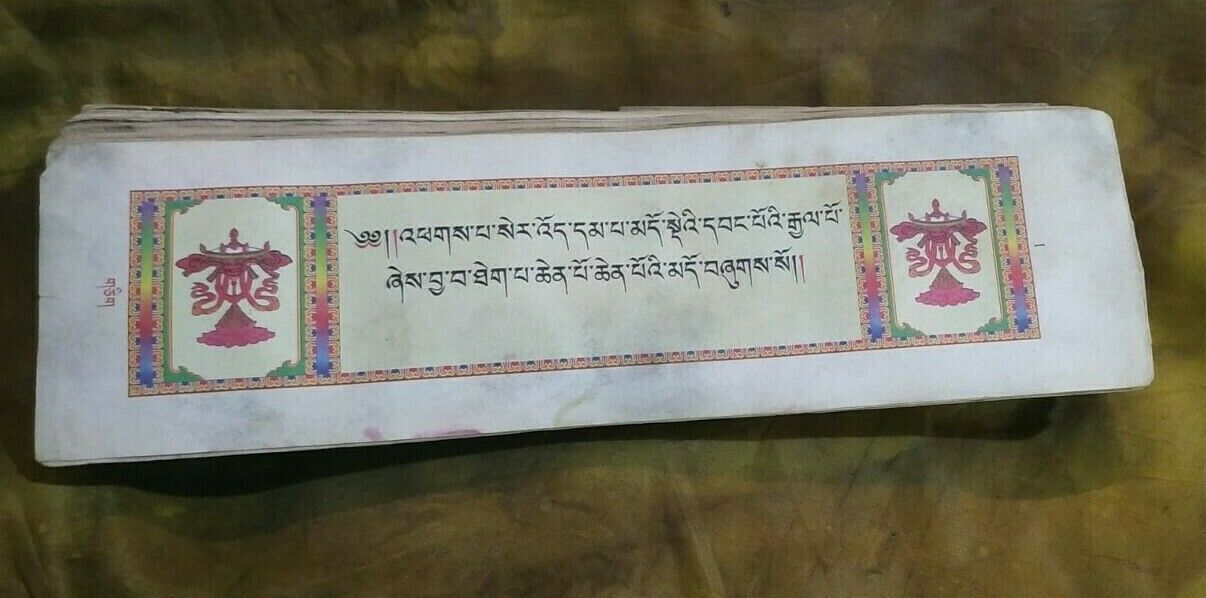 ༄༅།།འཕགས་པ་སེར་འོད་དམ་པ་མདོ་སྡེའི་དབང་པོའི་རྒྱལ་པོ་
ཞེས་བྱ་བ་ཐེག་པ་ཆེན་པོ་ཆེན་པོའི་མདོ་བཞུགས་སོ།།
གཅིག
1